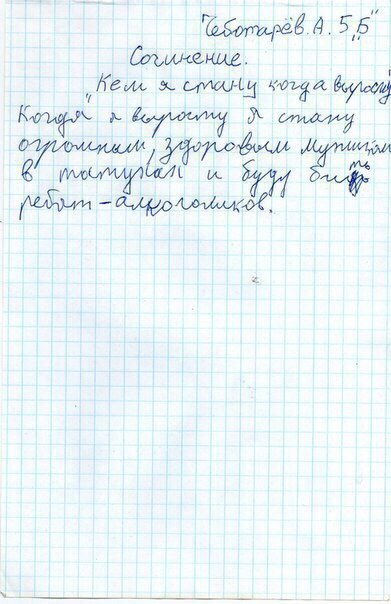 Чеботарёв. А. 5 „Б"
Сочинение.
„Кем я стану когда вырасту"
Когда я вырасту я стану
огромным, здоровым мужиком
в татухах и буду бить
ребят-алкоголиков.